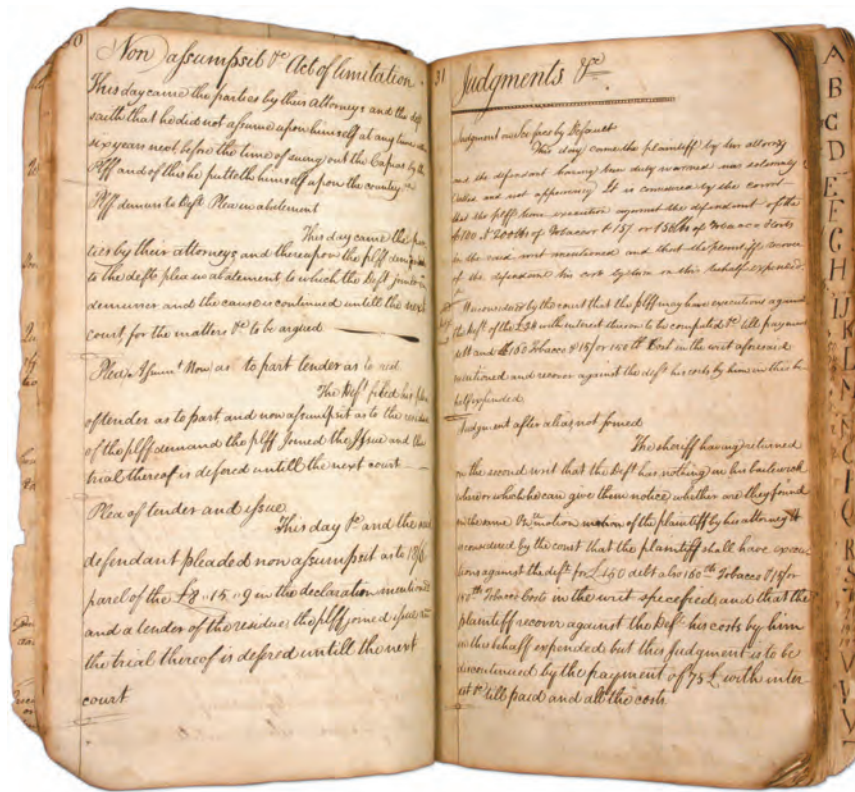 30
Non assumpsit &c Act of limitation
This day came the parties by their attorneys and the deft
saith that he did not assume upon himself at any time
six years next before the time of suing out the Capias by the
Plff and of this he putteth himself upon the country &c
Plff demurs to Defts Plea in abatement
This day came the par
ties by their attorneys and thereupon the plff demurs
to the defts plea in abatement to which the Deft joined in
demurrer and the cause is continued untill the next
court for the matters &c to be argued
Plea Assumt Non as to part tender as to resd
The Deft filed his plea
of tender as to part and non assumpsit as to the residue
of the plff demand the plff Joined the Issue and the
trial thereof is defered untill the next court
Plea of tender and issue
This day &c and the said
defendant pleaded non assumpsit as to 18/6
parcel of the £8 " 15 " 9 in the declaration mentioned
and a tender of the residue the plff joined issue
the trial thereof is defered untill the next
court
31
Judgments &c
Judgment on Sci fas by Default
This day came the plaintiff by his attorney
and the defendant having been duly warned was solemnly
Called and not appearing It is considered by the court
that the plff have execution against the defendant of the
£100 & 200lbs of Tobacco & 15/ or 150lbs of Tobacco Costs
in the said writ mentioned and that the plaintiff recover
of the defendant his costs by him in this behalf expended
It is considered by the court that the plff may have executions against
the Deft of the £38 with interest thereon to be computed &c till payment
debt and 160 Tobacco & 15/ or 150 lb Cost in the writ aforesaid
mentioned and recover against the deft his costs by him in this be
half expended
Judgment after alias not found
The sheriff having returned
on the second writ that the Deft has nothing in his bailewick
where or which he can give them notice whether are they found
in the same On motion motion of the plaintiff by his attorney It
is considered by the court that the plaintiff shall have execu
tions against the deft for £150 debt also 160 lb Tobacco & 15/ or
150 lb Tobacco Costs in the writ specefied and that the
plaintiff recover against the Deft his costs by him
in this behalf expended but this Judgment is to be
discontinued by the payment of 75£ with inter
est &c till paid and all the costs
A
B
C
D
E
F
G
H
IJ
K
L
M
N
O
P
Q
R
S
T
V